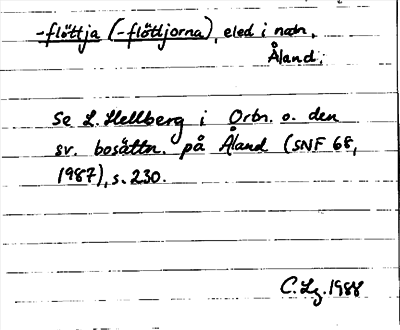 -flöttja (-flöttjorna), eled i namn,
Åland;
Se L. Hellberg i Ortn. o. den
sv. bosättn. på Åland (SNF 68,
1987), s. 230.
C. Lg. 1988